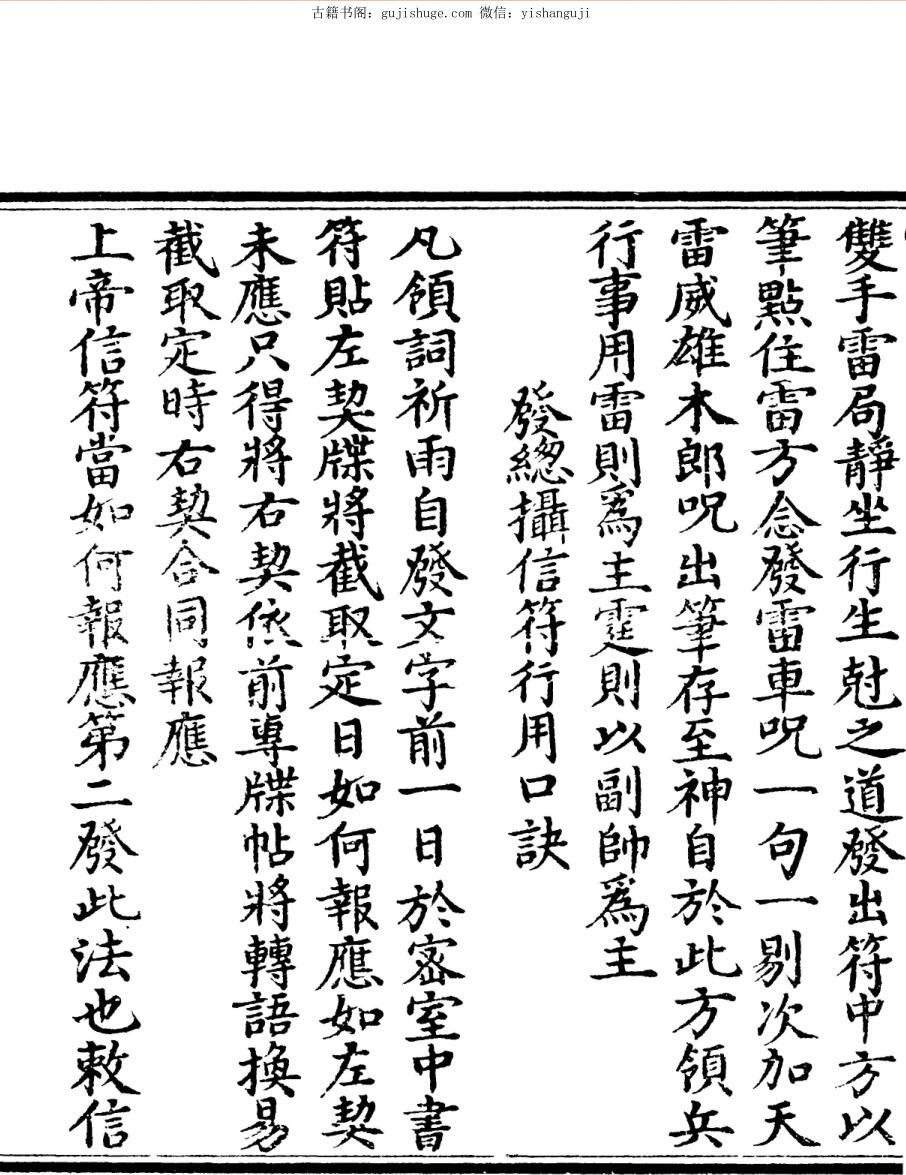 古籍书阁：gujishuge.com 微信：yishanguji
雙手雷局靜坐行生尅之道發出符中方以
筆點住雷方念發雷車呪一句一剔次加天
雷威雄木郎呪出筆存至神自於此方領兵
行事用雷則爲主霆則以副帥爲主
發總攝信符行用口訣
凡領詞祈雨自發文字前一日於密室中書
符貼左契牒將截取定日如何報應如左契
未應只得將右契依前專牒帖將轉語換易
截取定時右契合同報應
上帝信符當如何報應第二發此法也敕信